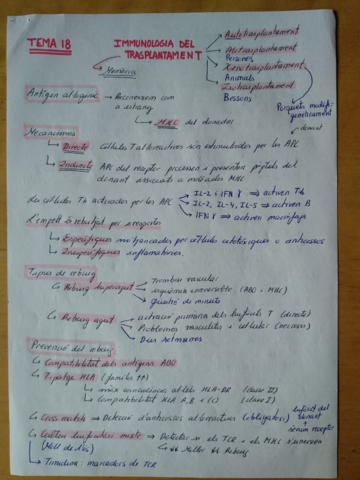 TEMA 18
IMMUNOLOGIA DEL TRASPLANTAMENT
→ Autotrasplantament
→ Alotrasplantament
Persones
→ Xenotrasplantament
Animals
→ Isotrasplantament
Bessons
Memòria
Antigen al·logènic → Reconeixem com a estrany
→ MHC del donador
Mecanismes
→ Directe Cèl·lules T al·loreactives són estimulades per les APC
→ Indirecte APC del receptor processen i presenten pèptids del donant associats a molècules MHC
Les cèl·lules Th activades per les APC
→ IL-2 i IFN γ ⇒ activen Tc
→ IL-2, IL-4, IL-5 ⇒ activen B
→ IFN γ ⇒ activen macròfags
L'empelt és rebutjat per
→ Específiques mitjançades per cèl·lules citotòxiques o anticossos
→ Inespecífiques inflamatòries.
Tipus de rebuig
→ Rebuig hiperagut
→ Trombosi vascular
→ (ABO i MHC)
→ Qüestió de minuts
→ Rebuig agut
→ activació primària dels limfòcits T (directe)
→ Problemes vasculitis i cel·lular
→ Dies setmanes
Prevenció del rebuig
→ Compatibilitat dels antígens ABO
→ Tipatge HLA (família ↑↑)
→ al·lels HLA-DR (classe II)
→ compatibilitat HLA A, B i (C) (classe I)
→ Cross match → Detecció d'anticossos al·loreactius (obligatori)
limfòcit del donant + sèrum receptor
→ Cultiu limfocitari mixte → Detectar si els TCR i els MHC s'uneixen
→ Timidina: marcadors de TCR